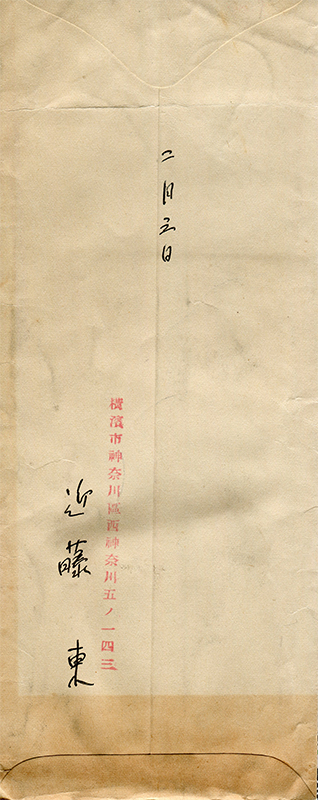 二月三日
橫濱市神奈川區西神奈川五ノ一四三
近藤東